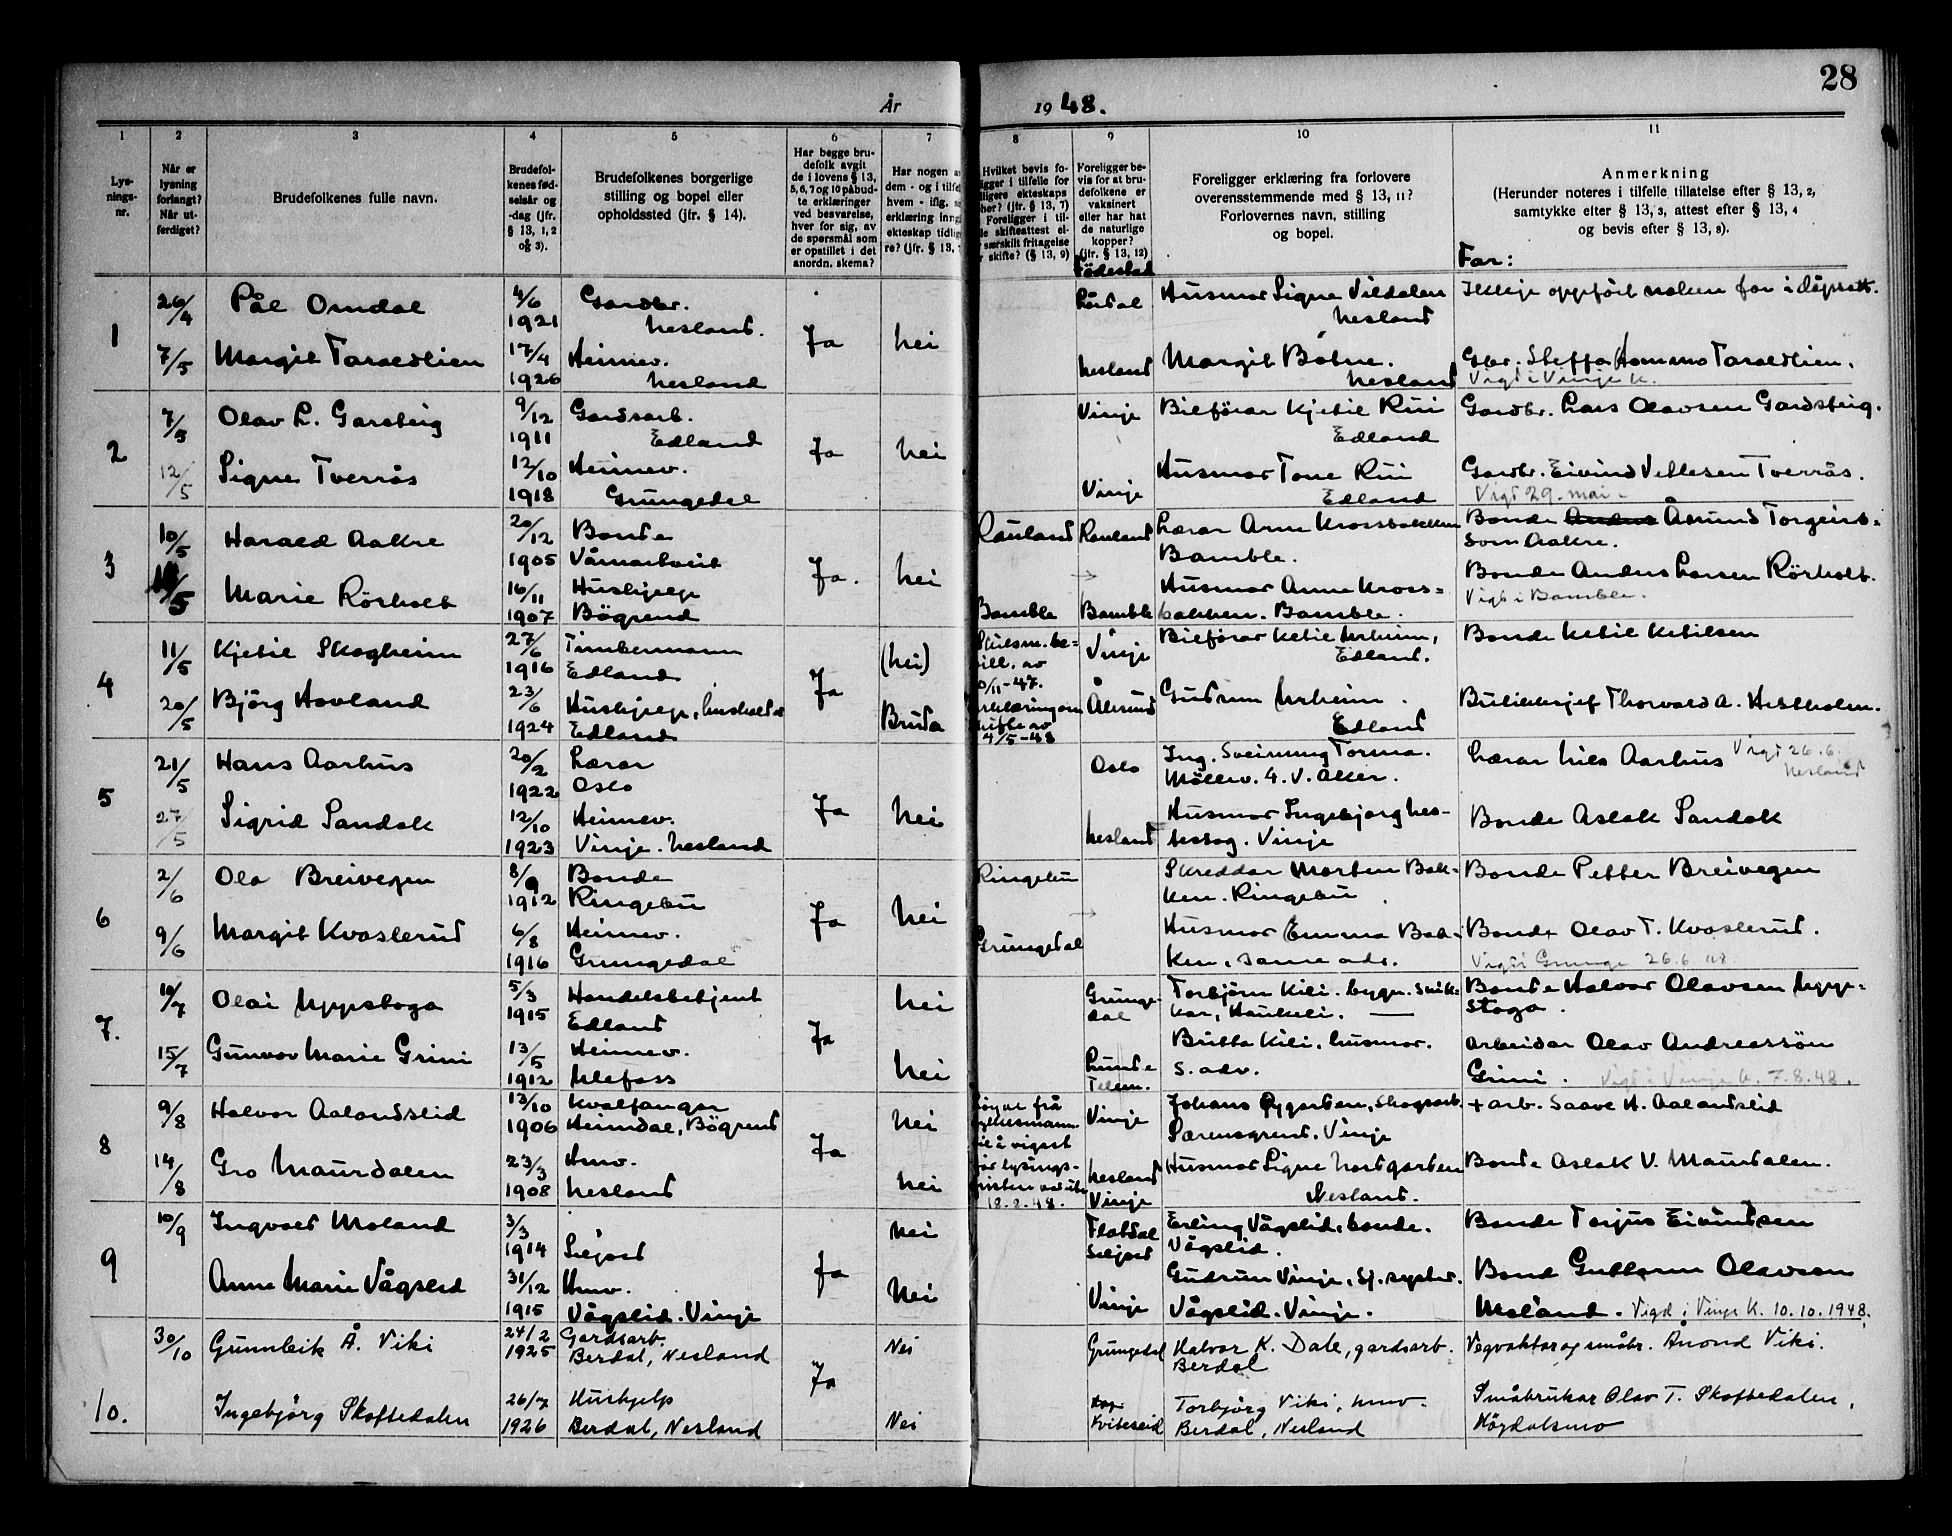 28
År 1948.
1
2
3
4
5
6
7
8
9
10
11
Lys-
nings-
nr.
Når er
lysning
forlangt?
Når ut-
ferdiget?
Brudefolkenes fulle navn.
Brudefol-
kenes fød-
selsår og
-dag (jfr.
§ 13, 1, 2
og 3).
Brudefolkenes borgerlige
stilling og bopel eller
opholdssted (jfr. § 14).
Har begge bru-
defolk avgit
de i lovens § 13,
5, 6, 7 og 10 påbud-
te erklæringer
ved besvarelse,
hver for sig, av
de spørsmål som
er opstillet i det
anordn. skema?
Har nogen a
dem - og i tilfel
hvem - iflg.
erklæring inng
ekteskap tidlig
re? (jfr. § 13,
Hvilket bevis fo-
igger i tilfelle for
ligere ekteskaps
her? (jfr. § 13, 7)
Foreligger i til-
e skifteattest el-
særskilt fritagelse
skifte? (§ 13, 9)
Foreligger be-
vis for at bru-
defolkene er
vaksinert
eller har hat
de naturlige
kopper?
(jfr. § 13, 12)
Födestad
Foreligger erklæring fra forlovere
overensstemmende med § 13, 11?
Forlovernes navn, stilling
og bopel.
Anmerkning
(Herunder noteres i tilfelle tillatelse efter § 13, 2,
samtykke efter § 13, 3, attest efter § 13, 4
og bevis efter § 13, 8).
Far:
1
26/4
Pål Omdal
4/6
1921
Gardbr.
Nesland.
Ja
Nei
Husmor Signe Vildalen
Nesland
Ikkje oppført noken far i dåpsatt.
7/5
Margit Taraldlien
17/4
1926
Heimev.
Nesland
Nesland
Margit Bøhne.
Nesland
Taraldlien.
Vigd i Vinje k.
2
7/5
Olav L. Garsteig
9/12
1911
Gardsarb.
Edland
Ja
Nei
Vinje
Bilförar Kjetil Rui
Edland
Gardbr. Lars Olavsen Gardsteig.
12/5
Signe Tverrås
12/10
1918
Heimev.
Grungedal
Vinje
Husmor Tone Rui
Edland
Gardbr. Eivind Vetlesen Tverrås.
Vigd 29. mai
3
10/5
Harald Aakre
20/12
1905
Bonde
Våmartveit
Ja.
Nei
Rauland
Rauland
Lærar Arne Krossbakken
Bamble.
Bonde Åsmund Torgeirs-
son Aakre.
Marie Rörholt
16/11
1907
Hushjelp
Bögrend
Bamble
Bamble
Husmor Anne Kross-
bakken. Bamble.
Bonde Anders Larsen Rörholt.
Vigd i Bamble.
4
11/5
Kjetil Skogheim
27/6
1916
Timbermann
Edland
Ja
(Nei)
Vinje
Bilförar Ketil Urheim,
Edland.
Bonde Ketil Ketilsen
20/5
Björg Hovland
23/6
1924
Edland
Bruda
4/5-48
Ålesund
Gudrun Urheim.
Edland
Butikksjef Thorvald A. Hestholm.
5
21/5
Hans Aarhus
20/2
1922
Lærar
Oslo
Ja
Nei
Oslo
Ing. Sveinung Torma.
Möllev. 4. V. Aker.
Lærar Nils Aarhus
Vigd 26.6.
Nesland
27/5
Sigrid Sandok
12/10
1923
Heimev.
Vinje. Nesland
Nesland
Husmor Ingebjørg Nes-
testog. Vinje
Bonde Aslak Sandok
6
2/6
Ola Breivegen
8/9
1912
Bonde
Ringebu
Ja
Nei
Ringebu
Skreddar Morten Bak-
ken. Ringebu
Bonde Petter Breivegen
9/6
Margit Kvaslerud
6/8
1916
Heimev.
Grungedal
Grungedal
Husmor Emma Bak-
ken, same adr.
Bonde Olav T. Kvaslerud.
Vigd i Grunge 26.6.48.
7.
10/7
Olai Uppstoga
5/3
1915
Handelsbetjent
Edland
Ja
Nei
Grunge-
dal
Torbjörn Kili. bygn. snik-
kar, Haukeli.
Bonde Halvor Olavsen Upp-
stoga.
15/7
Gunvor Marie Grini
13/5
1912
Heimev.
Ulefoss
Nei
Lunde
Telem.
Britta Kili, husmor.
S. adr.
Arbeidar Olav Andreassön
Grini. Vigd i Vinje k. 7.8.48.
8
9/8
Halvor Aalandslid
13/10
1906
Kvalfangar
Heimdal, Bögrend
Ja
Nei
Vinje
Johans Nygarden, skogsarb.
Særensgrend. Vinje
+ arb. Saave H. Aalandslid
14/8
Gro Maurdalen
23/3
1908
Hmv.
Nesland
Nei
18.8.48.
Nesland
Vinje
Husmor Signe Nordgarden
Nesland.
Bonde Aslak V. Maurdalen.
9
10/9
Ingvald Moland
3/3
1914
Seljord
Ja
Nei
Flatdal
Seljord
Erling Vågslid, bonde.
Vågslid.
Bonde Torjus Eivindsen
Anne Marie Vågslid
31/12
1915
Hmv.
Vågslid. Vinje
Nei
Vinje
Gudrun Vinje, sj. syster.
Vågslid. Vinje.
Bond Guttorm Olavson
Moland. Vigd i Vinje K. 10.10.1948.
10.
30/10
Gunnleik Å. Viki
24/2
1925
Gardsarb.
Berdal, Nesland
Ja
Nei
Grungedal
Halvor K. Dale, gardsarb.
Berdal
Vegvaktar og småbr. Ånond Viki.
Ingebjörg Skoftedalen
26/7
1926
Hushjelp
Berdal, Nesland
Nei
Kviteseid
Torbjörg Viki, hmv.
Berdal, Nesland
Småbrukar Olav T. Skoftedalen,
Högdalsmo